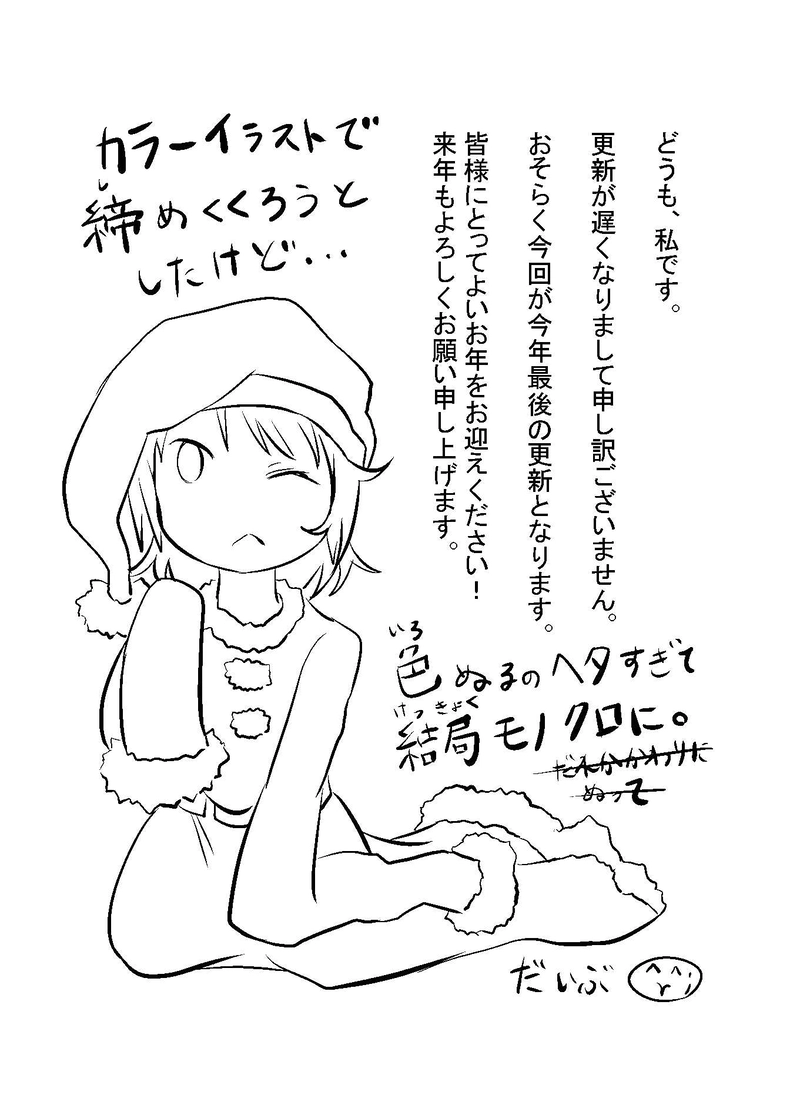 どうも、私です。
更新が遅くなりまして申し訳ございません。
おそらく今回が今年最後の更新となります。
皆様にとってよいお年をお迎えください！
来年もよろしくお願い申し上げます。
カラーイラストで
し
締めくくろうと
したけど...
いろ
色ぬるのヘタすぎて
けっきょく
結局モノクロに。
だれかかわりに
ぬって
だいぶ